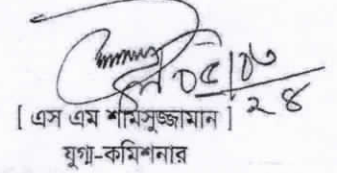 ০৫|০৬
২৪
[ এস এম শামিসুজ্জামান ]
যুগ্ম-কমিশনার